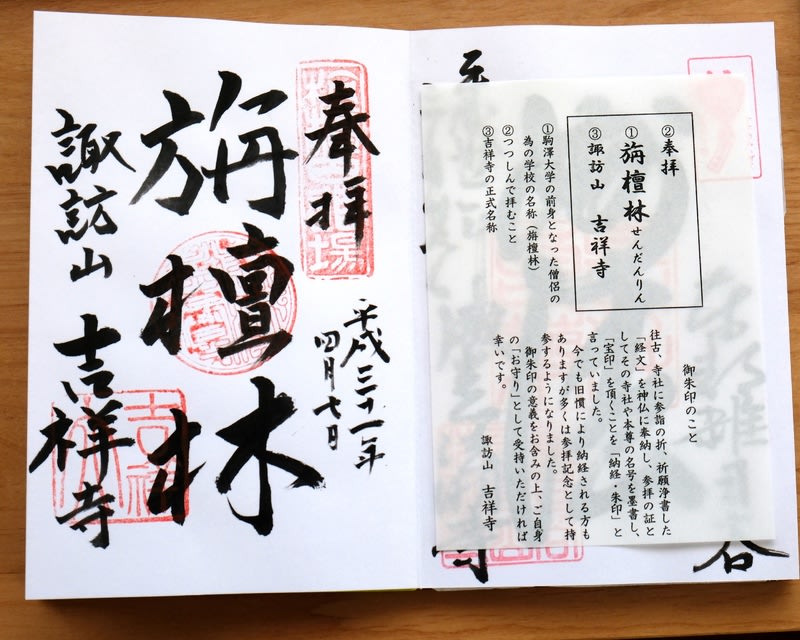 ②奉拝
①旃檀林 せんだんりん
③諏訪山 吉祥寺
①駒澤大学の前身となった僧侶の
為の学校の名称(旃檀林)
②つつしんで拝むこと
③吉祥寺の正式名称
御朱印のこと
往古、寺社に参詣の折、祈願浄書した
「経文」を神仏に奉納し、参拝の証と
してその寺社や本尊の名号を墨書し、
「宝印」を頂くことを「納経・朱印」と
言っていました。
今でも旧慣により納経される方も
ありますが多くは参拝記念として持
参するようになりました。
御朱印の意義をお含みの上、ご自身
の「お守り」として受持いただければ
幸いです。
諏訪山 吉祥寺
奉拝
平成三十一年
四月七日
旃檀林
諏訪山 吉祥寺